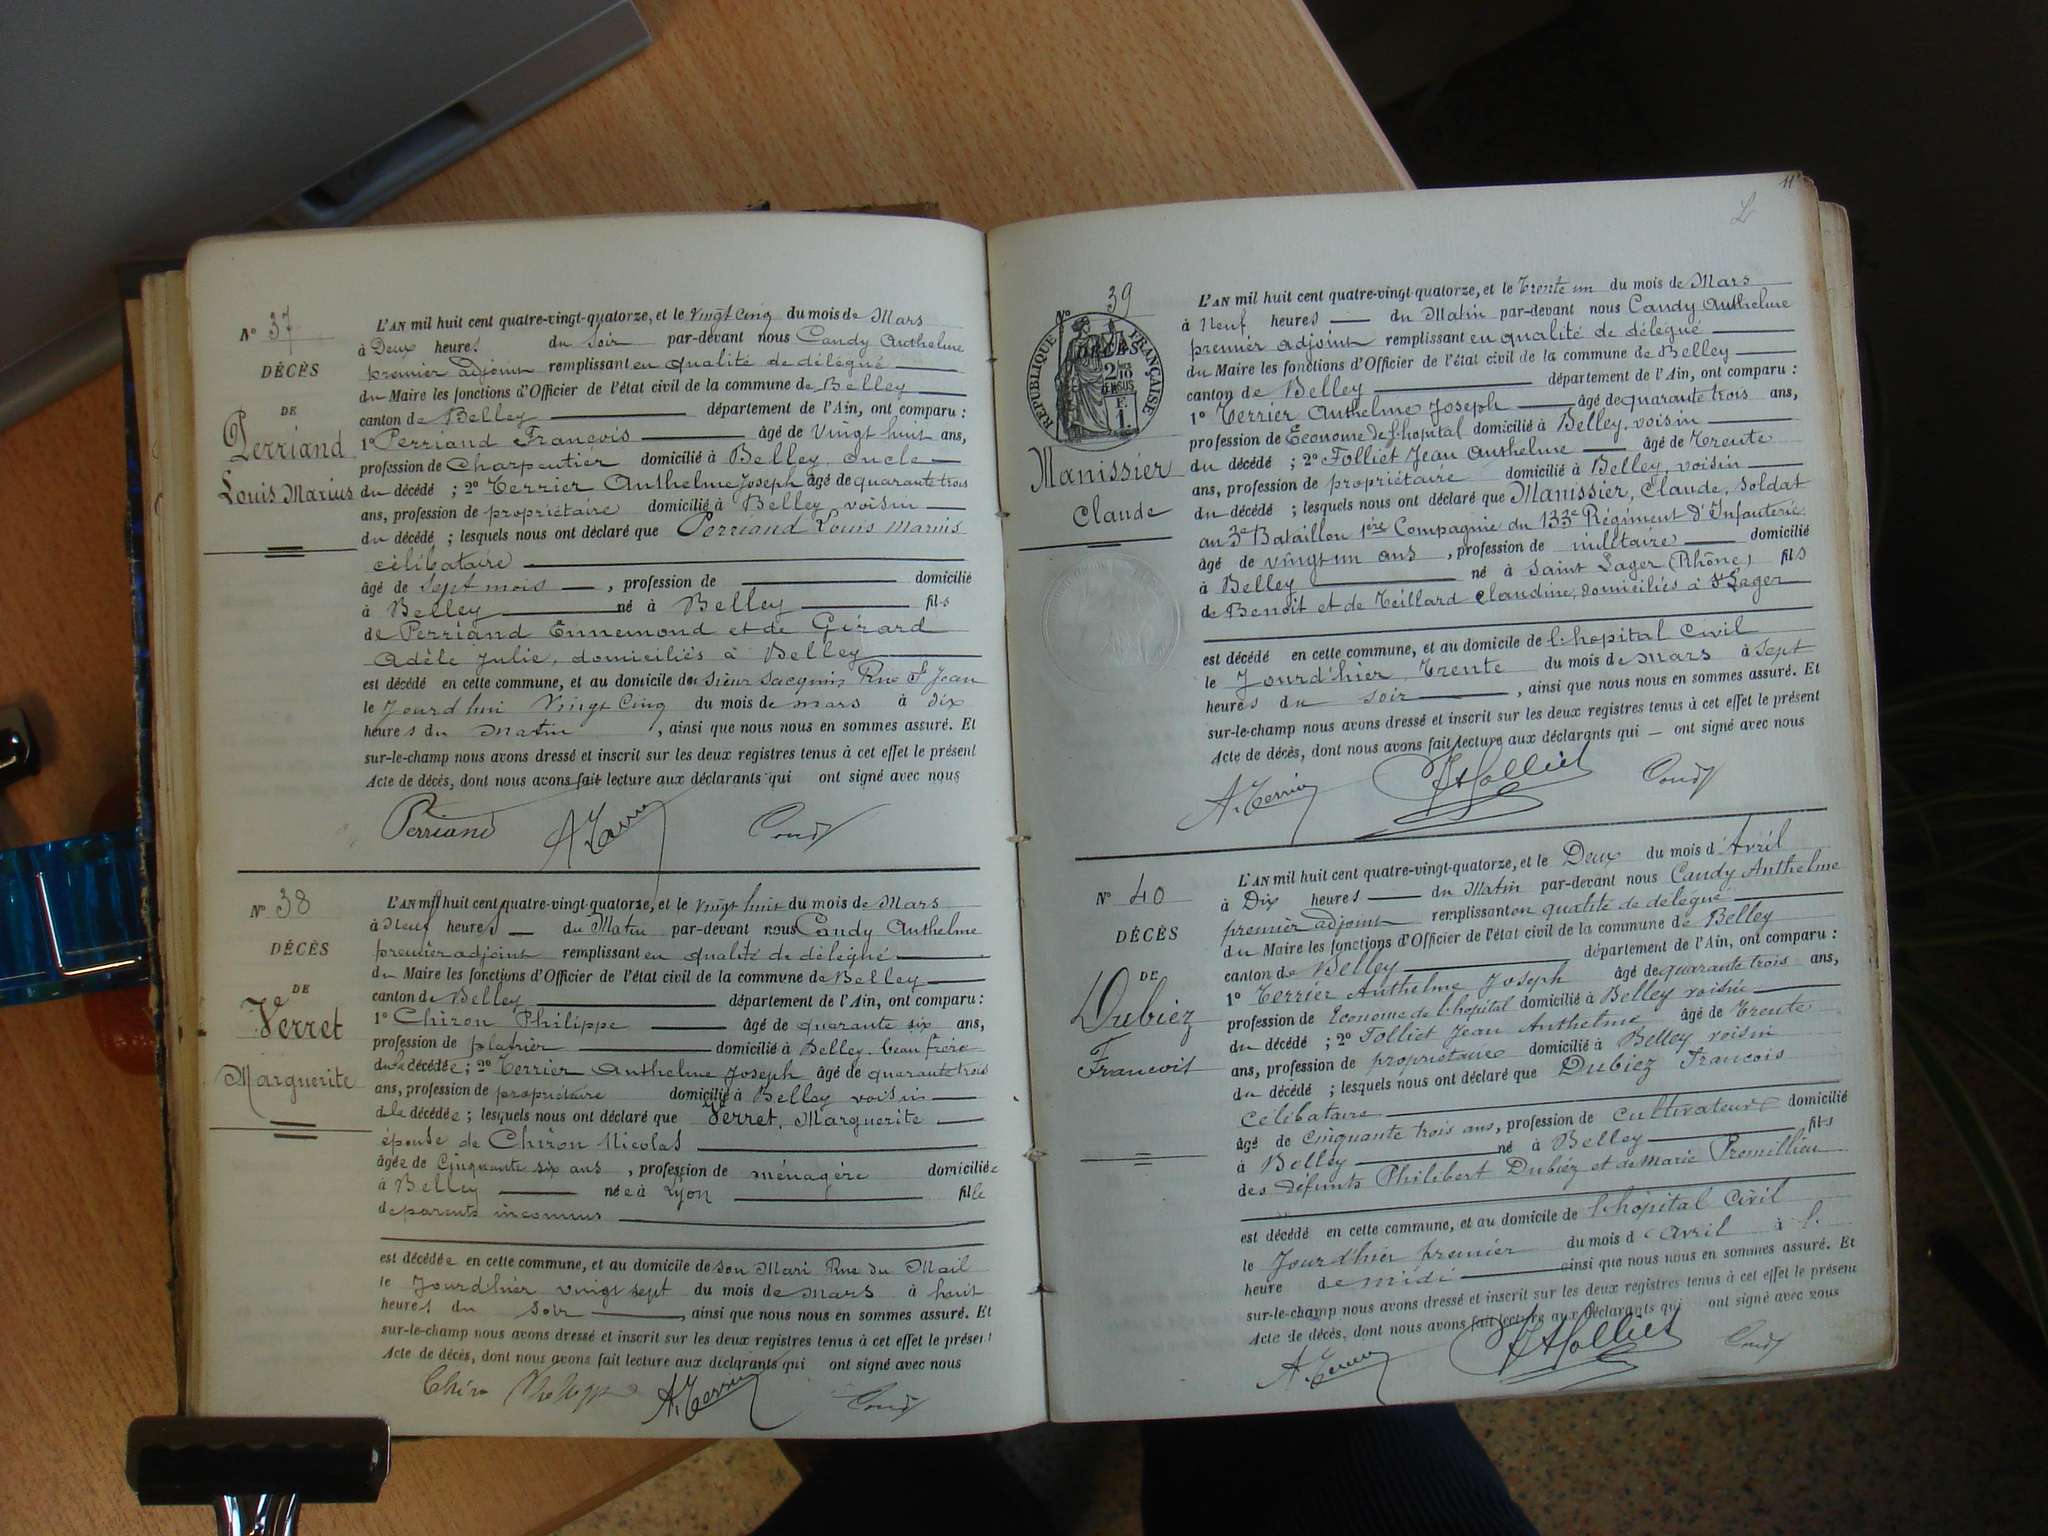 N° 37
DÉCÈS
DE
Perriand
Louis Marius
L'AN mil huit cent quatre-vingt-quatorze, et le vingt cinq du mois de Mars
à Deux heures du soir par-devant nous Candy Anthelme
premier adjoint remplissant en qualité de délégué
du Maire les fonctions d'Officier de l'état civil de la commune de Belley
canton de Belley département de l'Ain, ont comparu :
1° Perriand François âgé de vingt huit ans,
profession de Charpentier domicilié à Belley, oncle
du décédé ; 2° Terrier Anthelme Joseph âgé de quarante trois
ans, profession de propriétaire domicilié à Belley voisin
du décédé ; lesquels nous ont déclaré que Perriand Louis Marius
célibataire
âgé de sept mois , profession de domicilié
à Belley né à Belley fils
de Perriand Ennemond et de Girard
Adèle Julie, domiciliés à Belley
est décédé en cette commune, et au domicile du sieur Jacquin Rue St Jean
le Jourd'hui Vingt Cinq du mois de mars à dix
heures du Matin , ainsi que nous nous en sommes assuré. Et
sur-le-champ nous avons dressé et inscrit sur les deux registres tenus à cet effet le présent
Acte de décès, dont nous avons fait lecture aux déclarants qui ont signé avec nous
Perriand A. Terrier Candy
N° 38
DÉCÈS
DE
Verret
Marguerite
L'AN mil huit cent quatre-vingt-quatorze, et le vingt huit du mois de Mars
à Neuf heures du Matin par-devant nous Candy Anthelme
premier adjoint remplissant en qualité de délégué
du Maire les fonctions d'Officier de l'état civil de la commune de Belley
canton de Belley département de l'Ain, ont comparu :
1° Chiron Philippe âgé de quarante six ans,
profession de platrier domicilié à Belley. beau frère
de la décédée ; 2° Terrier Anthelme Joseph âgé de quarante trois
ans, profession de propriétaire domicilié à Belley voisin
de la décédée ; lesquels nous ont déclaré que Verret, Marguerite
épouse de Chiron Nicolas
âgée de Cinquante six ans , profession de ménagère domiciliée
à Belley née à Lyon fille
de parents inconnus
est décédée en cette commune, et au domicile de son Mari Rue du Mail
le Jourd'hier vingt sept du mois de mars à huit
heures du soir , ainsi que nous nous en sommes assuré. Et
sur-le-champ nous avons dressé et inscrit sur les deux registres tenus à cet effet le présent
Acte de décès, dont nous avons fait lecture aux déclarants qui ont signé avec nous
Chiron Philippe A. Terrier Candy
11
N° 39
DÉCÈS
RÉPUBLIQUE FRANÇAISE
2/10 EN SUS
F. 1.
Manissier
Claude
L'AN mil huit cent quatre-vingt-quatorze, et le Trente un du mois de Mars
à Neuf heures du Matin par-devant nous Candy Anthelme
premier adjoint remplissant en qualité de délégué
du Maire les fonctions d'Officier de l'état civil de la commune de Belley
canton de Belley département de l'Ain, ont comparu :
1° Terrier Anthelme Joseph âgé de quarante trois ans,
profession de Econome de l'hopital domicilié à Belley. voisin
du décédé ; 2° Folliet Jean Anthelme âgé de Trente
ans, profession de propriétaire domicilié à Belley, voisin
du décédé ; lesquels nous ont déclaré que Manissier, Claude, soldat
au 3e Bataillon 1ère Compagnie du 133e Régiment d'Infanterie
âgé de vingt un ans , profession de militaire domicilié
à Belley né à Saint Lager (Rhône) fils
de Benoît et de Teillard Claudine, domiciliés à St Lager
est décédé en cette commune, et au domicile de l'hopital Civil
le Jourd'hier, Trente du mois de Mars à Sept
heures du soir , ainsi que nous nous en sommes assuré. Et
sur-le-champ nous avons dressé et inscrit sur les deux registres tenus à cet effet le présent
Acte de décès, dont nous avons fait lecture aux déclarants qui — ont signé avec nous
A. Terrier JAFolliet Candy
N° 40
DÉCÈS
DE
Dubiez
Francois
L'AN mil huit cent quatre-vingt-quatorze, et le Deux du mois d'Avril
à Dix heures du Matin par-devant nous Candy Anthelme
premier adjoint remplissant en qualité de délégué
du Maire les fonctions d'Officier de l'état civil de la commune de Belley
canton de Belley département de l'Ain, ont comparu :
1° Terrier Anthelme Joseph âgé de quarante trois ans,
profession de Econome de l'hopital domicilié à Belley voisin
du décédé ; 2° Folliet Jean Anthelme âgé de Trente
ans, profession de propriétaire domicilié à Belley voisin
du décédé ; lesquels nous ont déclaré que Dubiez Francois
célibataire
âgé de Cinquante trois ans, profession de cultivateur domicilié
à Belley né à Belley fils
des défunts Philibert Dubiez et de Marie Promillieu
est décédé en cette commune, et au domicile de l'hopital Civil
le Jourd'hier premier du mois d'Avril à l.
heure de midi ainsi que nous nous en sommes assuré. Et
sur-le-champ nous avons dressé et inscrit sur les deux registres tenus à cet effet le présent
Acte de décès, dont nous avons fait lecture aux déclarants qui ont signé avec nous
A. Terrier JAFolliet Candy